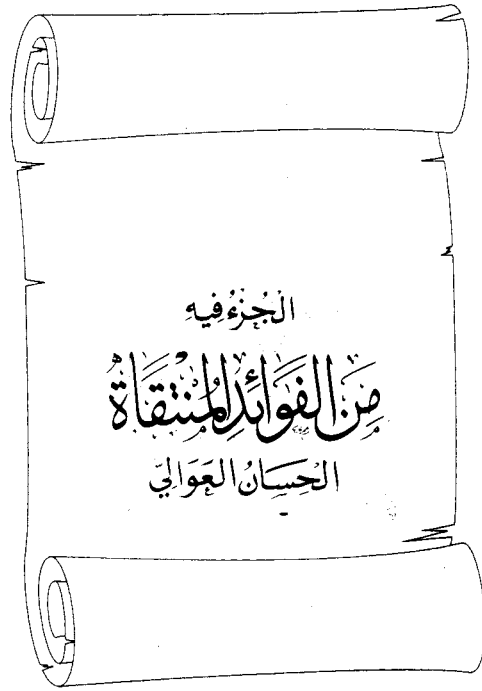 الْجُزْءُ فِيهِ
مِنَ الفَوَائِدِ المُنْتَقَاةِ
الحِسَانُ العَوَالِيّ